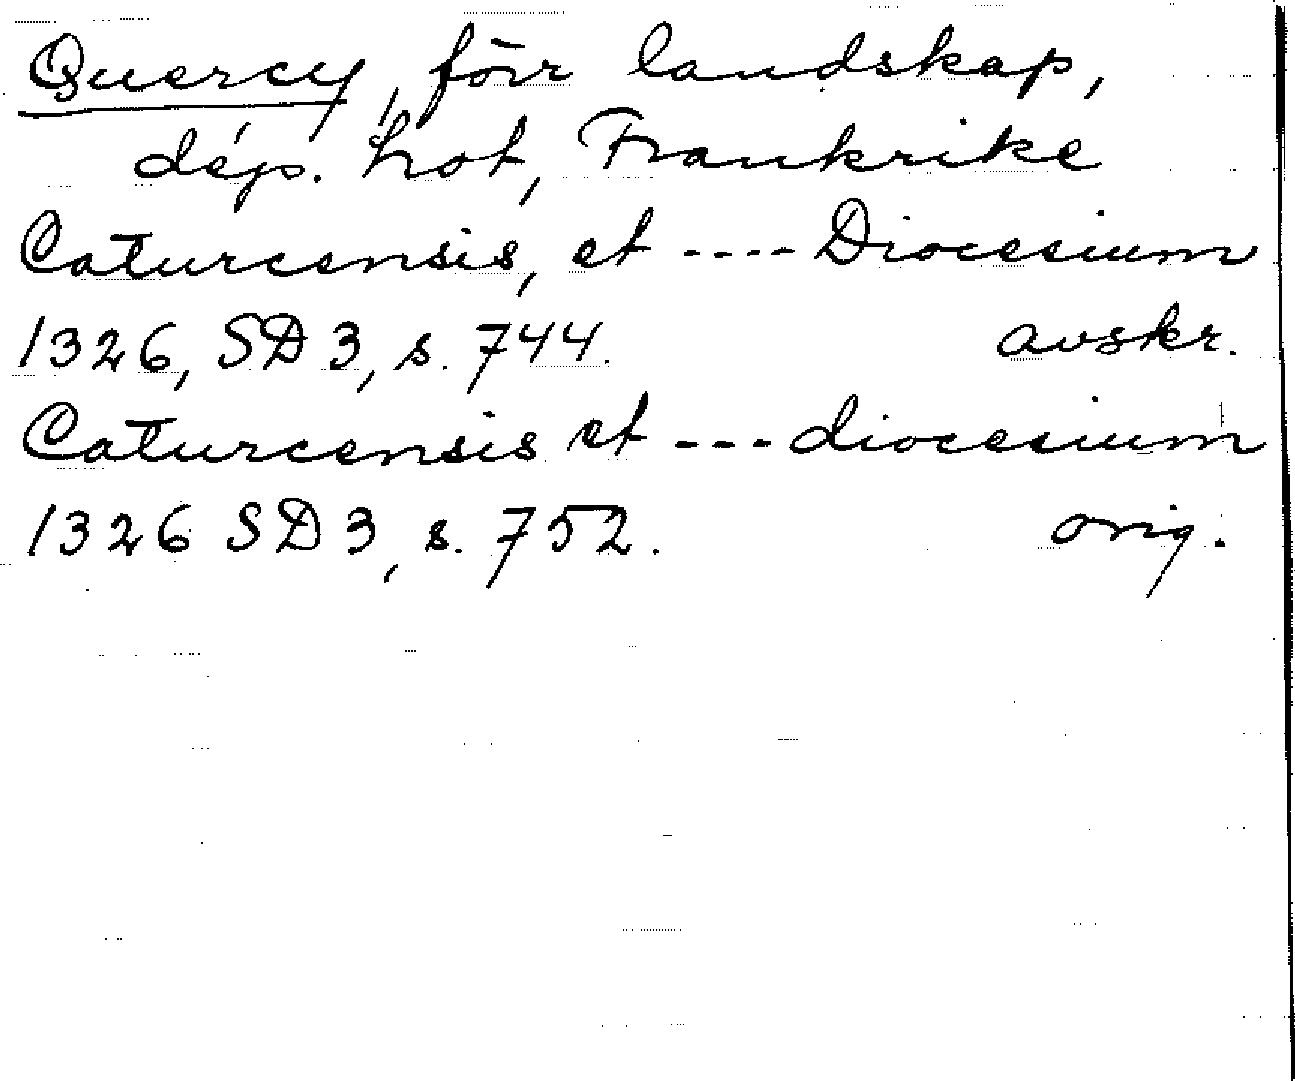 Quercy, förr landskap,
dép. Lot, Frankrike
Caturcensis, et ---- Diocesium
1326, SD 3, s. 744. avskr.
Caturcensis et --- diocesium
1326 SD 3, s. 752. orig.